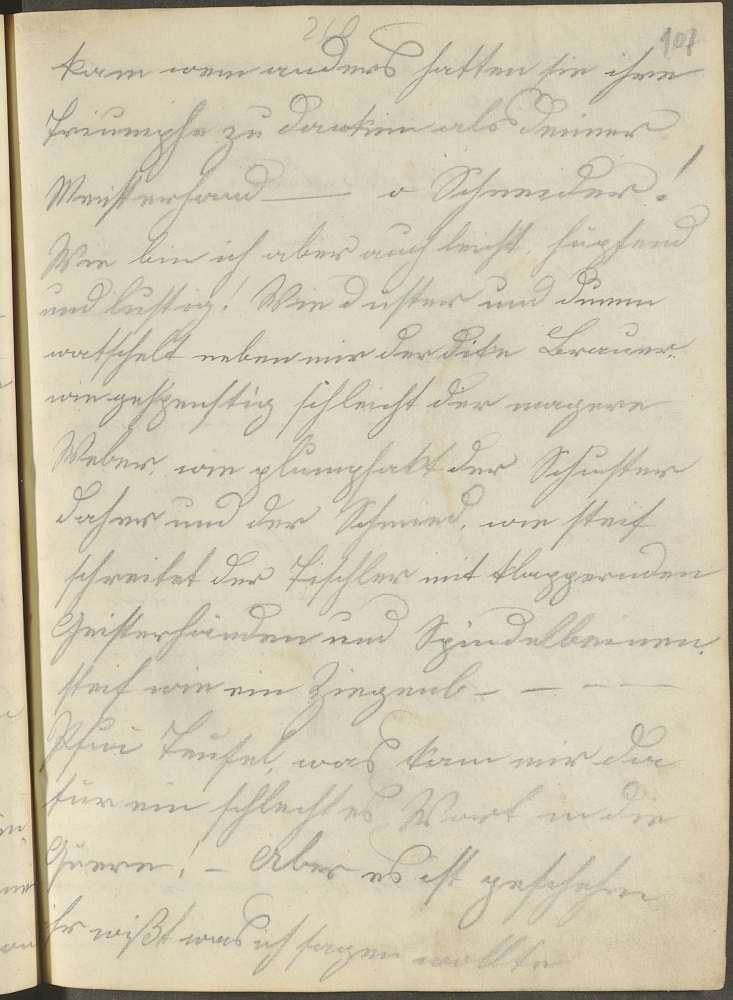 218 107
kam wem anders hatten sie ihre
Triumphe zu danken als deiner
Meisterhand — o Schneider!
Wie bin ich aber auch leicht, hüpfend
und lustig! Wie duster und dumm
watschelt neben mir der dike Brauer,
wie gespenstig schleicht der magere
Weber, wie plumphakt der Schuster
daher und der Schmied, wie steif
schreitet der Tischler mit klappernden
Geisterhänden und Spindelbeinen,
steif wie ein Ziegenb- — — —
Pfui Teufel, was kam mir da
für ein schlechtes Wort in die
Quere! – Aber es ist geschehen
ihr wißt was ich sagen wollte